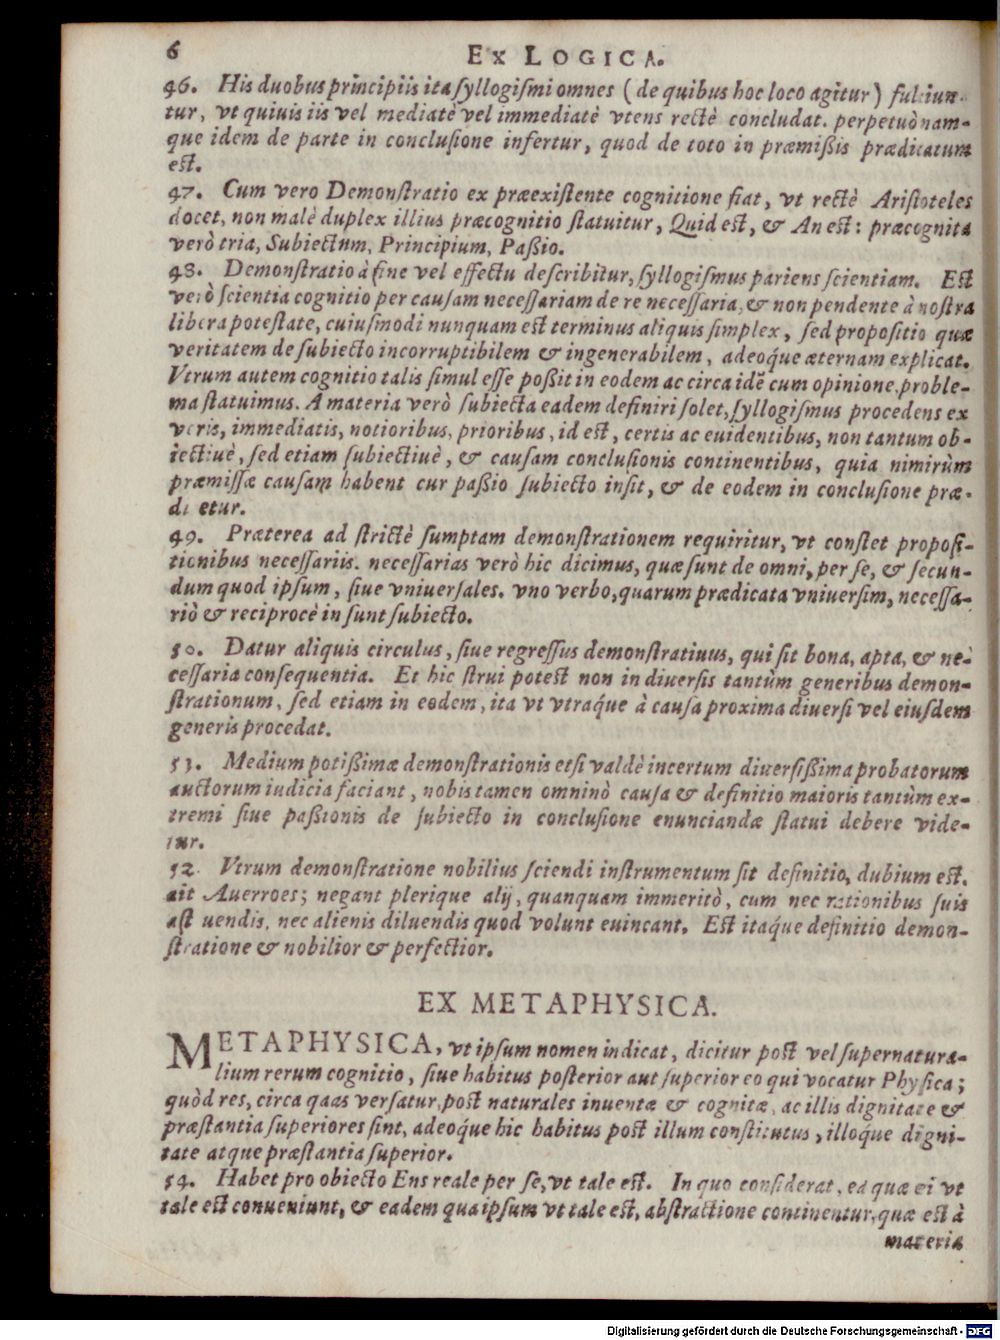 6 EX LOGICA.
46. His duobus principiis ita ſyllogiſmi omnes (de quibus hoc loco agitur) fulciun-
tur, vt quiuis iis vel mediatè vel immediatè vtens rectè concludat. perpetuò nam-
que idem de parte in concluſione infertur, quod de toto in præmißis prædicatum
est.
47. Cum vero Demonſtratio ex præexiſtente cognitione fiat, vt rectè Ariſtoteles
docet, non malè duplex illius præcognitio ſtatuitur, Quid est, & An est: præcognita
verò tria, Subiectum, Principium, Paßio.
48. Demonſtratio à fine vel effectu deſcribitur, ſyllogiſmus pariens ſcientiam. Est
verò ſcientia cognitio per cauſam neceſſariam de re neceſſaria, & non pendente à noſtra
libera poteſtate, cuiuſmodi nunquam est terminus aliquis ſimplex, ſed propoſitio quæ
veritatem de ſubiecto incorruptibilem & ingenerabilem, adeoq́ue æternam explicat.
Vtrum autem cognitio talis ſimul eſſe poßit in eodem ac circa idẽ cum opinione, proble-
ma ſtatuimus. A materia verò ſubiecta eadem definiri ſolet, ſyllogiſmus procedens ex
veris, immediatis, notioribus, prioribus, id est, certis ac euidentibus, non tantum ob-
iectiuè, ſed etiam ſubiectiuè, & cauſam concluſionis continentibus, quia nimirùm
præmiſſæ cauſam habent cur paßio ſubiecto inſit, & de eodem in concluſione præ-
dicetur.
49. Præterea ad ſtrictè ſumptam demonſtrationem requiritur, vt conſtet propoſi-
tionibus neceſſariis. neceſſarias verò hic dicimus, quæ ſunt de omni, per ſe, & ſecun-
dum quod ipſum, ſiue vniuerſales. vno verbo, quarum prædicata vniuerſim, neceſſa-
riò & reciprocè inſunt ſubiecto.
50. Datur aliquis circulus, ſiue regreſſus demonſtratiuus, qui ſit bona, apta, & ne-
ceſſaria conſequentia. Et hic ſtrui potest non in diuerſis tantùm generibus demon-
ſtrationum, ſed etiam in eodem, ita vt vtraq́ue à cauſa proxima diuerſi vel eiuſdem
generis procedat.
53. Medium potißimæ demonſtrationis etſi valdè incertum diuerſißima probatorum
auctorum iudicia faciant, nobis tamen omninò cauſa & definitio maioris tantùm ex-
tremi ſiue paßionis de ſubiecto in concluſione enunciandæ ſtatui debere vide-
tur.
52. Vtrum demonſtratione nobilius ſciendi inſtrumentum ſit definitio, dubium est.
ait Auerroes; negant plerique alij, quanquam immeritò, cum nec rationibus ſuis
aſt uendis, nec alienis diluendis quod volunt euincant. Est itaq́ue definitio demon-
ſtratione & nobilior & perfectior.
EX METAPHYSICA.
METAPHYSICA, vt ipſum nomen indicat, dicitur post vel ſupernatura-
lium rerum cognitio, ſiue habitus poſterior aut ſuperior eo qui vocatur Phyſica;
quòd res, circa qaas verſatur, post naturales inuentæ & cognitæ, ac illis dignitate &
præſtantia ſuperiores ſint, adeoq́ue hic habitus post illum conſtitutus, illoq́ue digni-
tate atque præſtantia ſuperior.
54. Habet pro obiecto Ens reale per ſe, vt tale est. In quo conſiderat, ea quæ ei vt
tale est conueniunt, & eadem qua ipſum vt tale est, abſtractione continentur, quæ est à
materia
Digitalisierung gefördert durch die Deutsche Forschungsgemeinschaft - DFG